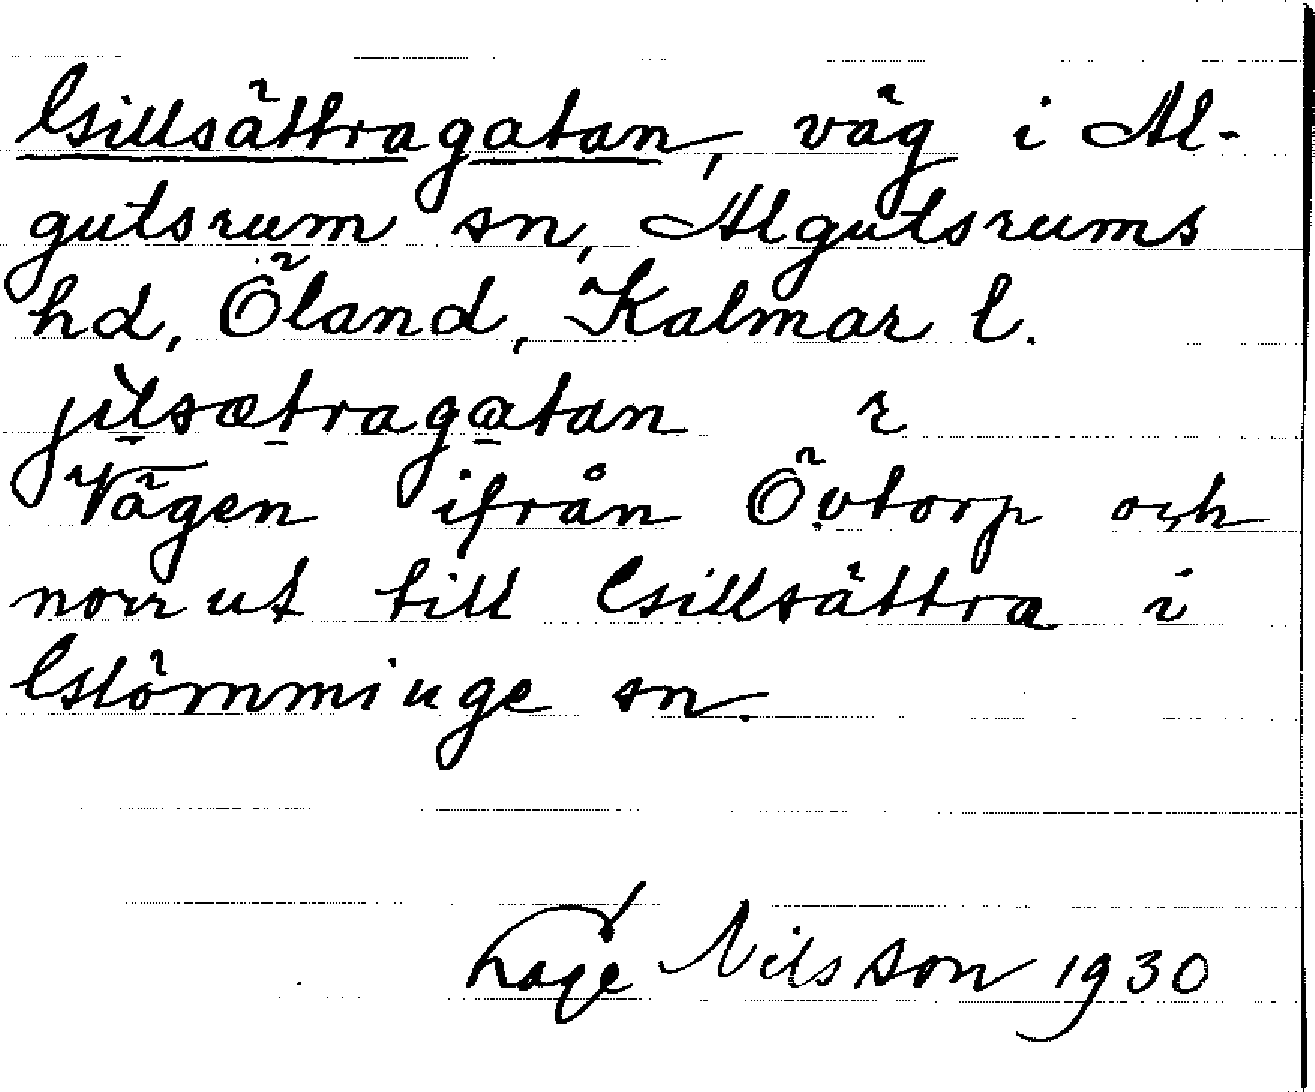 Gillsättragatan, väg i Al-
gutsrum sn, Algutsrums
hd, Öland, Kalmar l.
jilsætragatan r
Vägen ifrån Övtorp och
norrut till Gillsättra i
Glömminge sn.
Lage Nilsson 1930